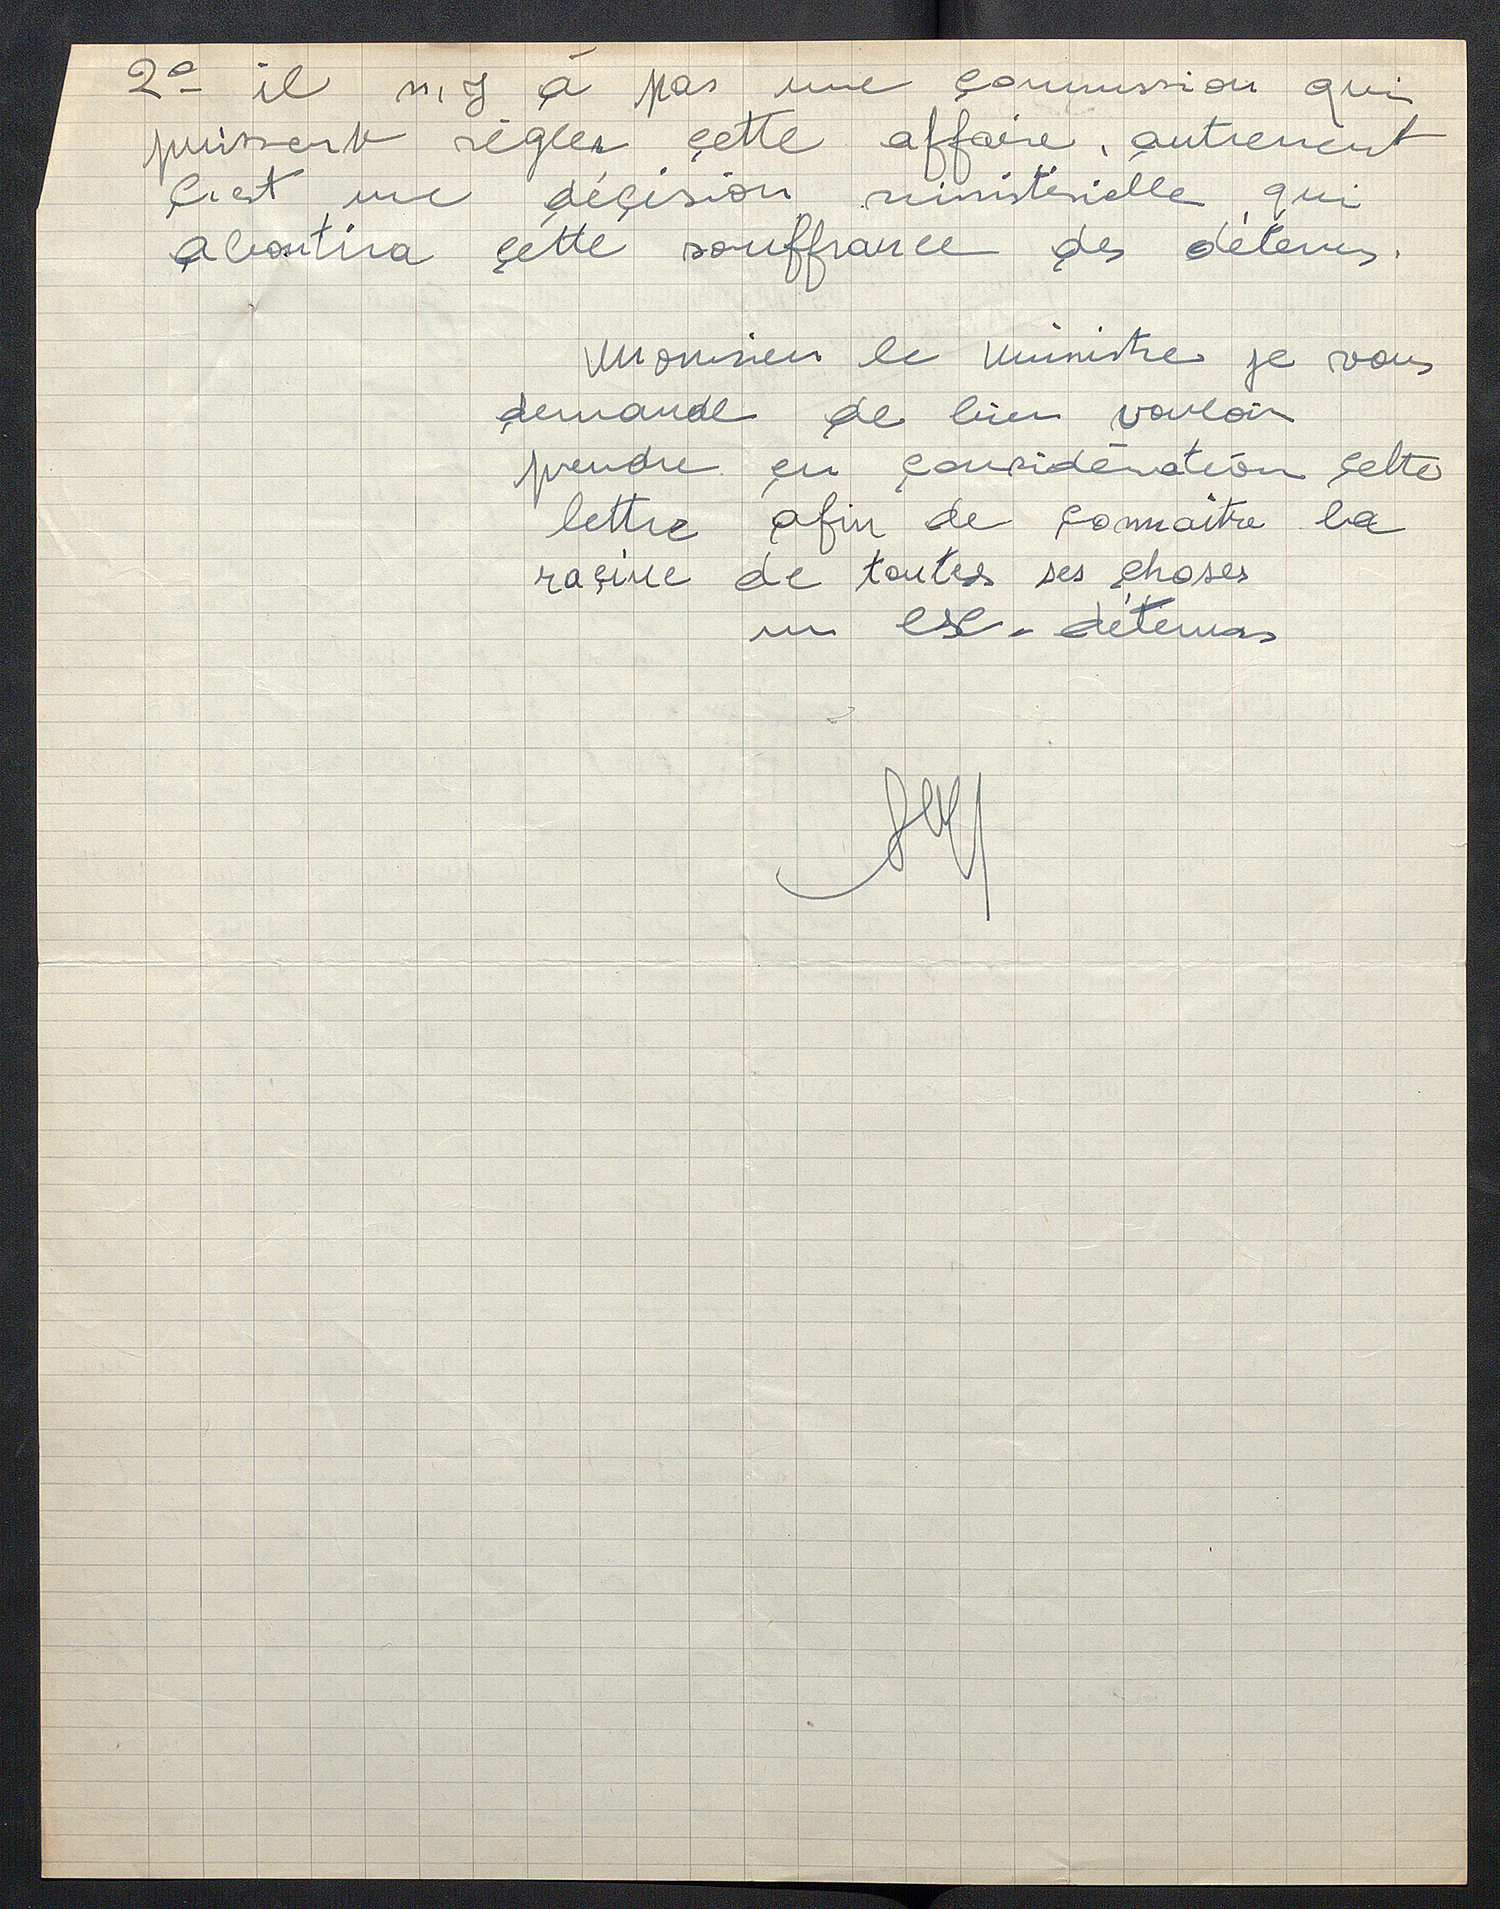 2º il n'y à pas une çommission qui
puissent régler çette affaire, autrement
ç'est une déçision ministérielle qui
aboutira çétte souffrance des détenus.
Monsieur le Ministre je vous
demande de bien vouloir
prendre en çonsidération çette
lettre afin de çonnaitre la
raçine de toutes ses çhoses
un ex-détenus